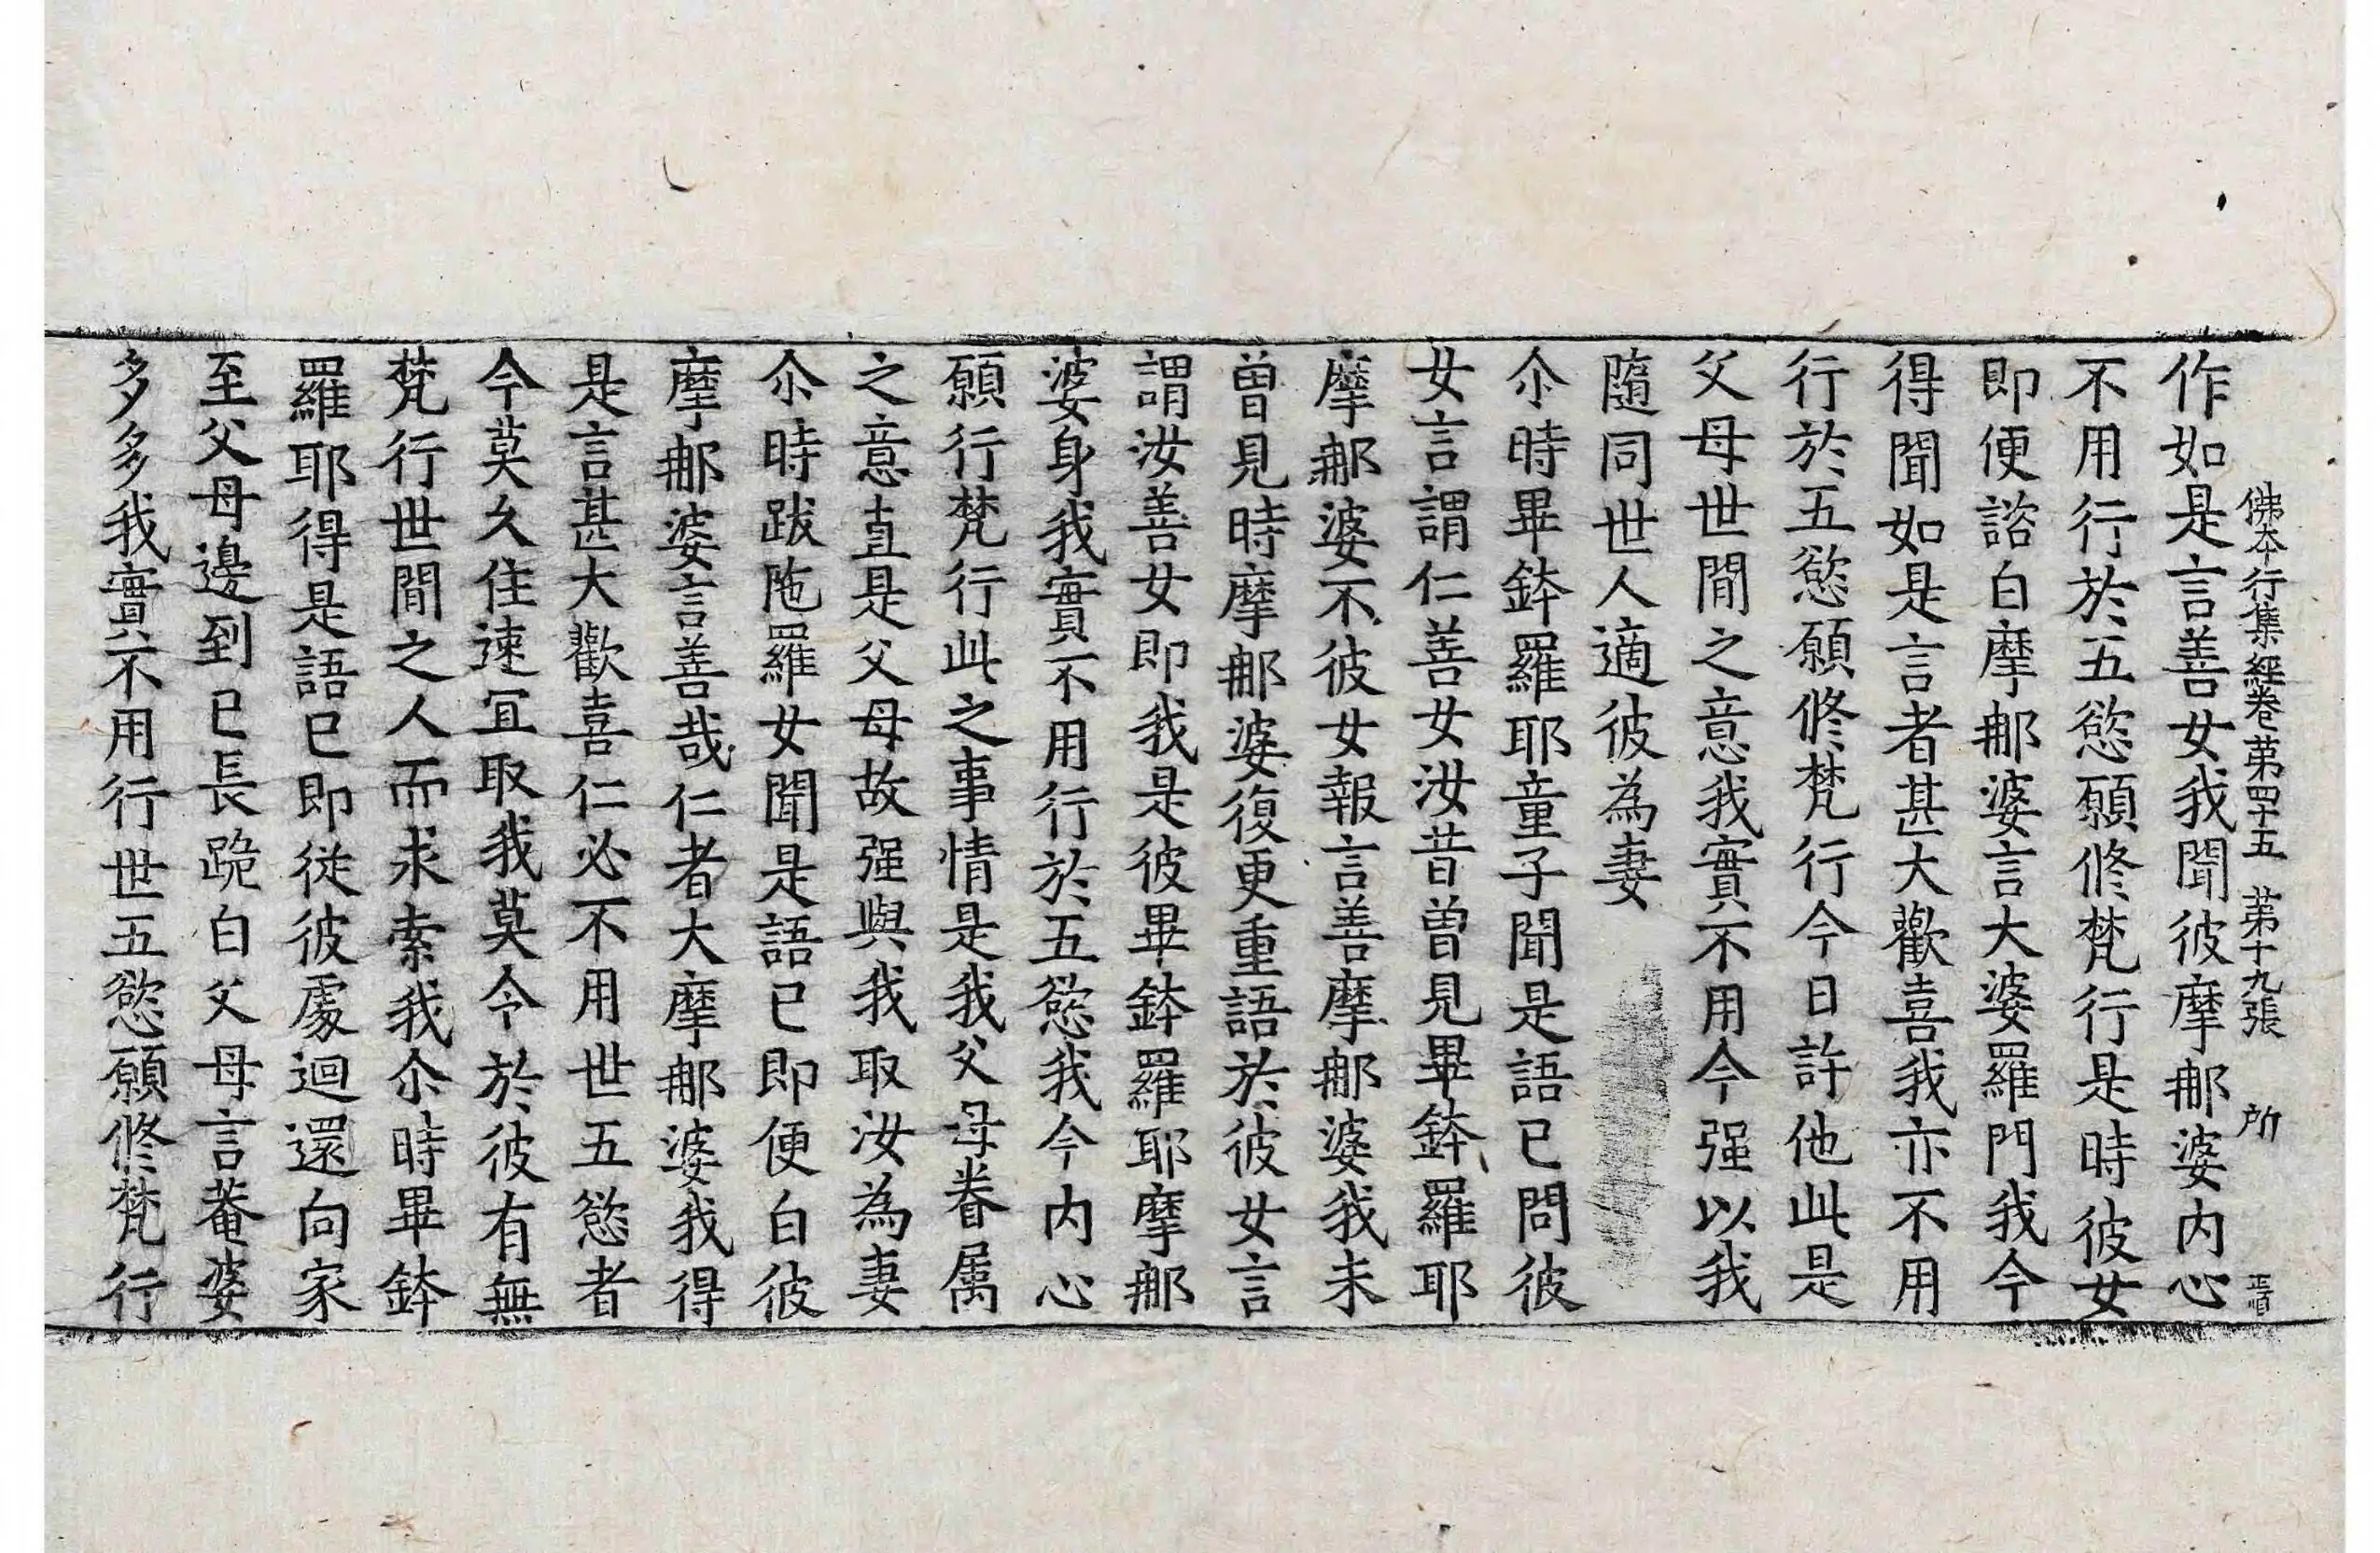 佛本行集經卷第四十五　第十九張　所
作如是言善女我聞彼摩那婆內心
不用行於五慾願修梵行是時彼女
即便諮白摩那婆言大婆羅門我今
得聞如是言者甚大歡喜我亦不用
行於五慾願修梵行今日許他此是
父母世間之意我實不用今强以我
隨同世人適彼為妻
尒時畢鉢羅耶童子聞是語已問彼
女言謂仁善女汝昔曾見畢鉢羅耶
摩那婆不彼女報言善摩那婆我未
曾見時摩那婆復更重語於彼女言
謂汝善女即我是彼畢鉢羅耶摩那
婆身我實不用行於五慾我今內心
願行梵行此之事情是我父母眷属
之意直是父母故强與我取汝為妻
尒時跋陁羅女聞是語已即便白彼
摩那婆言善哉仁者大摩那婆我得
是言甚大歡喜仁必不用世五慾者
今莫久住速宜取我莫令於彼有無
梵行世間之人而求索我尒時畢鉢
羅耶得是語已即從彼處迴還向家
至父母邊到已長跪白父母言菴婆
多多我實不用行世五慾願修梵行